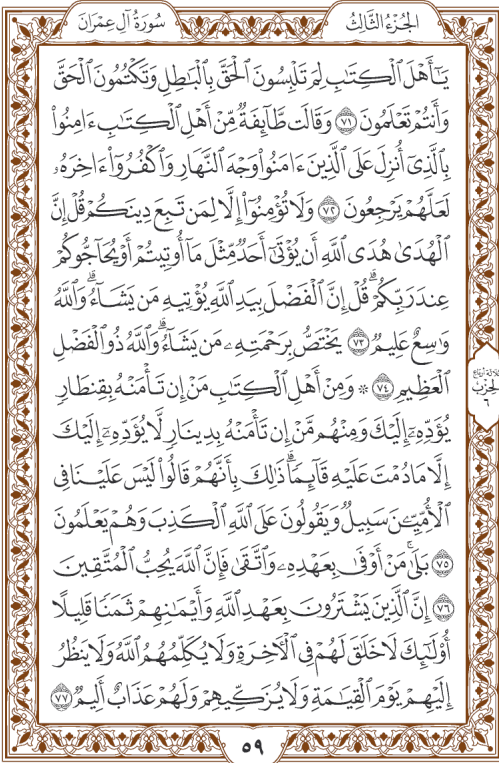 الجُزْءُ الثَّالِثُ
سُورَةُ آلِ عِمْرَانَ
يَٰٓأَهْلَ ٱلْكِتَٰبِ لِمَ تَلْبِسُونَ ٱلْحَقَّ بِٱلْبَٰطِلِ وَتَكْتُمُونَ ٱلْحَقَّ
وَأَنتُمْ تَعْلَمُونَ ٧١ وَقَالَت طَّآئِفَةٌ مِّنْ أَهْلِ ٱلْكِتَٰبِ ءَامِنُوا۟
بِٱلَّذِىٓ أُنزِلَ عَلَى ٱلَّذِينَ ءَامَنُوا۟ وَجْهَ ٱلنَّهَارِ وَٱكْفُرُوٓا۟ ءَاخِرَهُۥ
لَعَلَّهُمْ يَرْجِعُونَ ٧٢ وَلَا تُؤْمِنُوٓا۟ إِلَّا لِمَن تَبِعَ دِينَكُمْ قُلْ إِنَّ
ٱلْهُدَىٰ هُدَى ٱللَّهِ أَن يُؤْتَىٰٓ أَحَدٌ مِّثْلَ مَآ أُوتِيتُمْ أَوْ يُحَآجُّوكُمْ
عِندَ رَبِّكُمْ ۗ قُلْ إِنَّ ٱلْفَضْلَ بِيَدِ ٱللَّهِ يُؤْتِيهِ مَن يَشَآءُ ۗ وَٱللَّهُ
وَٰسِعٌ عَلِيمٌ ٧٣ يَخْتَصُّ بِرَحْمَتِهِۦ مَن يَشَآءُ ۗ وَٱللَّهُ ذُو ٱلْفَضْلِ
ٱلْعَظِيمِ ٧٤ ۞ وَمِنْ أَهْلِ ٱلْكِتَٰبِ مَنْ إِن تَأْمَنْهُ بِقِنطَارٍ
يُؤَدِّهِۦٓ إِلَيْكَ وَمِنْهُم مَّنْ إِن تَأْمَنْهُ بِدِينَارٍ لَّا يُؤَدِّهِۦٓ إِلَيْكَ
إِلَّا مَا دُمْتَ عَلَيْهِ قَآئِمًا ۗ ذَٰلِكَ بِأَنَّهُمْ قَالُوا۟ لَيْسَ عَلَيْنَا فِى
ٱلْأُمِّيِّـۧنَ سَبِيلٌ وَيَقُولُونَ عَلَى ٱللَّهِ ٱلْكَذِبَ وَهُمْ يَعْلَمُونَ
٧٥ بَلَىٰ ۚ مَنْ أَوْفَىٰ بِعَهْدِهِۦ وَٱتَّقَىٰ فَإِنَّ ٱللَّهَ يُحِبُّ ٱلْمُتَّقِينَ
٧٦ إِنَّ ٱلَّذِينَ يَشْتَرُونَ بِعَهْدِ ٱللَّهِ وَأَيْمَٰنِهِمْ ثَمَنًا قَلِيلًا
أُو۟لَٰٓئِكَ لَا خَلَٰقَ لَهُمْ فِى ٱلْءَاخِرَةِ وَلَا يُكَلِّمُهُمُ ٱللَّهُ وَلَا يَنظُرُ
إِلَيْهِمْ يَوْمَ ٱلْقِيَٰمَةِ وَلَا يُزَكِّيهِمْ وَلَهُمْ عَذَابٌ أَلِيمٌ ٧٧
ثلاثة أرباع
الحزب
٦
٥٩